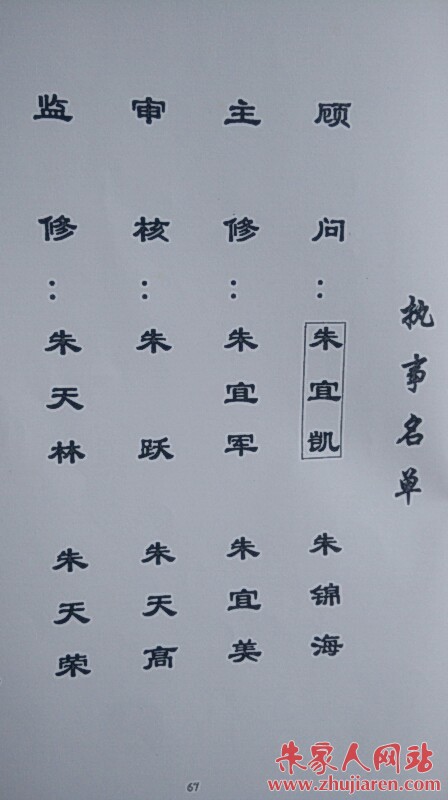 执事名单
顾问：朱宜凯 朱锦海
主修：朱宜军 朱宜美
审核：朱跃 朱天高
监修：朱天林 朱天荣
67
朱家人网站
www.zhujiaren.com